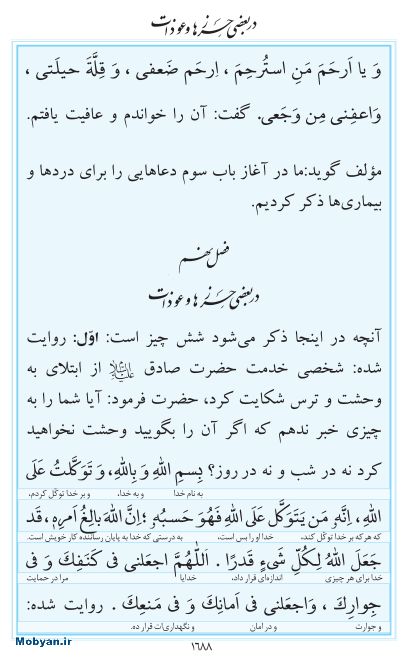 در بعضی حرزها و عوذات
وَ یا اَرحَمَ مَنِ استُرحِمَ ، اِرحَم ضَعفی ، وَ قِلَّةَ حیلَتی ،
وَاعفِنی مِن وَجَعی. گفت: آن را خواندم و عافیت یافتم.
مؤلف گوید:ما در آغاز باب سوم دعاهایی را برای دردها و
بیماری‌ها ذکر کردیم.
فصل نهم
در بعضی حرزها و عوذات
آنچه در اینجا ذکر می‌شود شش چیز است: اوّل: روایت
شده: شخصی خدمت حضرت صادق علیه‌السلام از ابتلای به
وحشت و ترس شکایت کرد، حضرت فرمود: آیا شما را به
چیزی خبر ندهم که اگر آن را بگویید وحشت نخواهید
کرد نه در شب و نه در روز؟ بِسمِ اللهِ وَ بِاللهِ، وَ تَوَکَّلتُ عَلَی
به نام خدا و به خدا، و بر خدا توکّل کردم،
اللهِ، اِنَّهٗ مَن یَتَوَکَّل عَلَی اللهِ فَهُوَ حَسبُهٗ ؛اِنَّ اللهَ بالِغُ اَمرِهٖ، قَد
که هرکه بر خدا توکّل کند، خدا او را بس است، به درستی که خدا به پایان رساننده کار خویش است.
جَعَلَ اللهُ لِکُلِّ شَیءٍ قَدرًا . اَللّٰهُمَّ اجعَلنی فی کَنَفِكَ وَ فی
خدا برای هر چیزی اندازه‌ای قرار داد، خدایا مرا در حمایت
جِوارِكَ ، وَاجعَلنی فی اَمانِكَ وَ فی مَنعِكَ . روایت شده:
و جوارت و در امان و نگهداری‌ات قرار ده.
Mobyan.ir
۱۶۸۸